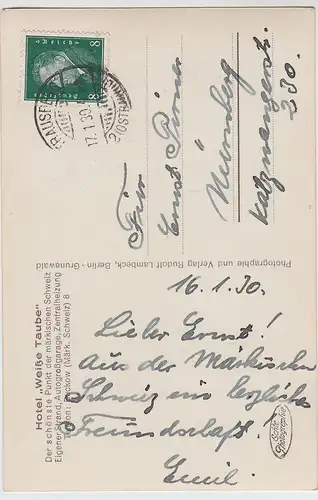 Hotel „Weiße Taube"
Der schönste Punkt der märkischen Schweiz
Eigener Strand, Autogroßgarage, Zentralheizung
Buckow (Märk. Schweiz) 8
Photographie und Verlag Rudolf Lambeck, Berlin-Grunewald
16.1.30.
Lieber Ernst!
Aus der Märkischen
Schweiz ein herzliches
Freundschaft!
Emil.
Echte
Photographie
8 8
Deutsches Reich
17.1.30
Ernst
Nürnberg
230.